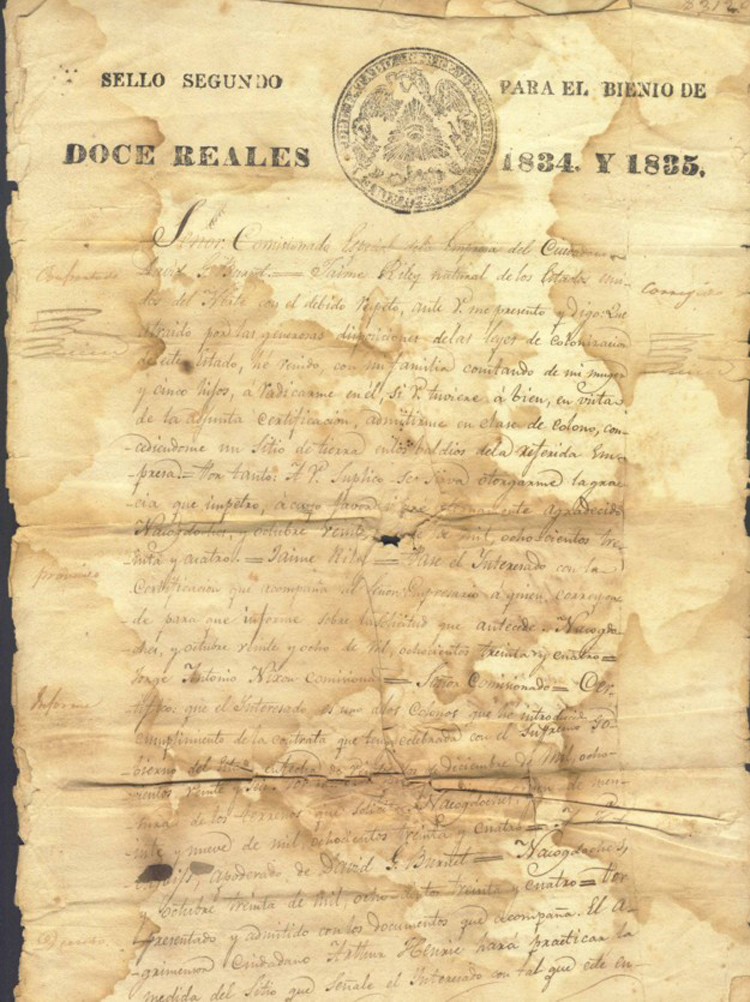 SELLO SEGUNDO
PARA EL BIENIO DE
DOCE REALES
1834. Y 1835.
Señor Comisionado Especial de la Empresa del Ciudadano
David G. Burnet.═ Jaime Riley natural de los Estados uni-
dos del Norte con el debido respeto, ante V. me presento y digo: Que
atraido por las generosas disposiciones de las leyes de colonizacion
de este Estado, he venido, con mi familia constando de mi muger
y cinco hijos, á radicarme en él, si V. tuviere á bien, en vista
de la adjunta certificacion, admitirme en clase de colono, con-
cediendome un Sitio de tierra en los baldios de la referida Em-
presa.═ Por tanto: A V. Suplico se sirva otorgarme la gra-
cia que impetro, á cuyo favor eternamente agradecido
Nacogdoches, y octubre veinte de mil, ochocientos tre-
inta y cuatro.═ Jaime Riley ═ Pase el Interesado con la
Certificacion que acompaña al Señor Empresario a quien correspon-
de para que informe sobre la solicitud que antecede. Nacogdo-
ches, y octubre veinte y ocho de mil, ochocientos treinta y cuatro═
Jorge Antonio Nixon Comisionado ═ Señor Comisionado ═ Cer-
tifico: que el Interesado es uno de los Colonos que he introducido
cumplimiento de la contrata que tengo celebrada con el Supremo Go-
bierno del Estado de diciembre de mil, ocho-
cientos veinte y seis
de los terrenos que solicita Nacogdoches,
nte y nueve de mil, ochocientos treinta y cuatro ═
apoderado de David G. Burnet ═ Nacogdoches,
y octubre treinta de mil, ochocientos treinta y cuatro ═
presentado y admitido con los documentos que acompaña. El A-
grimensor Ciudadano Arthur Henrie hará practicar la
medida del Sitio que señale el Interesado con tal que este en
Confrontado
Corregido
Informe
Decreto